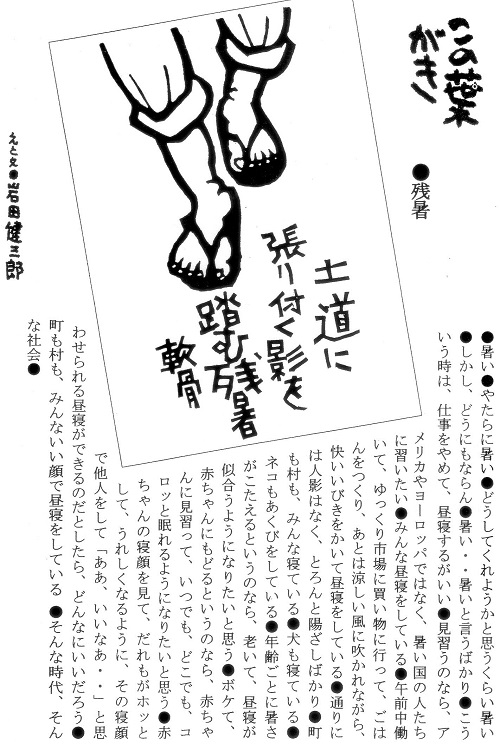 この葉
がき
●残暑
土道に
張り付く影を
踏む残暑
軟骨
えと文●岩田健三郎
●暑い●やたらに暑い●どうしてくれようかと思うくらい暑い
●しかし、どうにもならん●暑い・・暑いと言うばかり●こう
いう時は、仕事をやめて、昼寝するがいい●見習うのなら、ア
メリカやヨーロッパではなく、暑い国の人たち
に習いたい●みんな昼寝をしている●午前中働
いて、ゆっくり市場に買い物に行って、ごは
んをつくり、あとは涼しい風に吹かれながら、
快いいびきをかいて昼寝をしている●通りに
は人影はなく、とろんと陽ざしばかり●町
も村も、みんな寝ている●犬も寝ている●
ネコもあくびをしている●年齢ごとに暑さ
がこたえるというのなら、老いて、昼寝が
似合うようになりたいと思う●ボケて、
赤ちゃんにもどるというのなら、赤ちゃ
んに見習って、いつでも、どこでも、コ
ロッと眠れるようになりたいと思う●赤
ちゃんの寝顔を見て、だれもがホッと
して、うれしくなるように、その寝顔
で他人をして「ああ、いいなあ・・」と思
わせられる昼寝ができるのだとしたら、どんなにいいだろう●
町も村も、みんないい顔で昼寝をしている●そんな時代、そん
な社会●